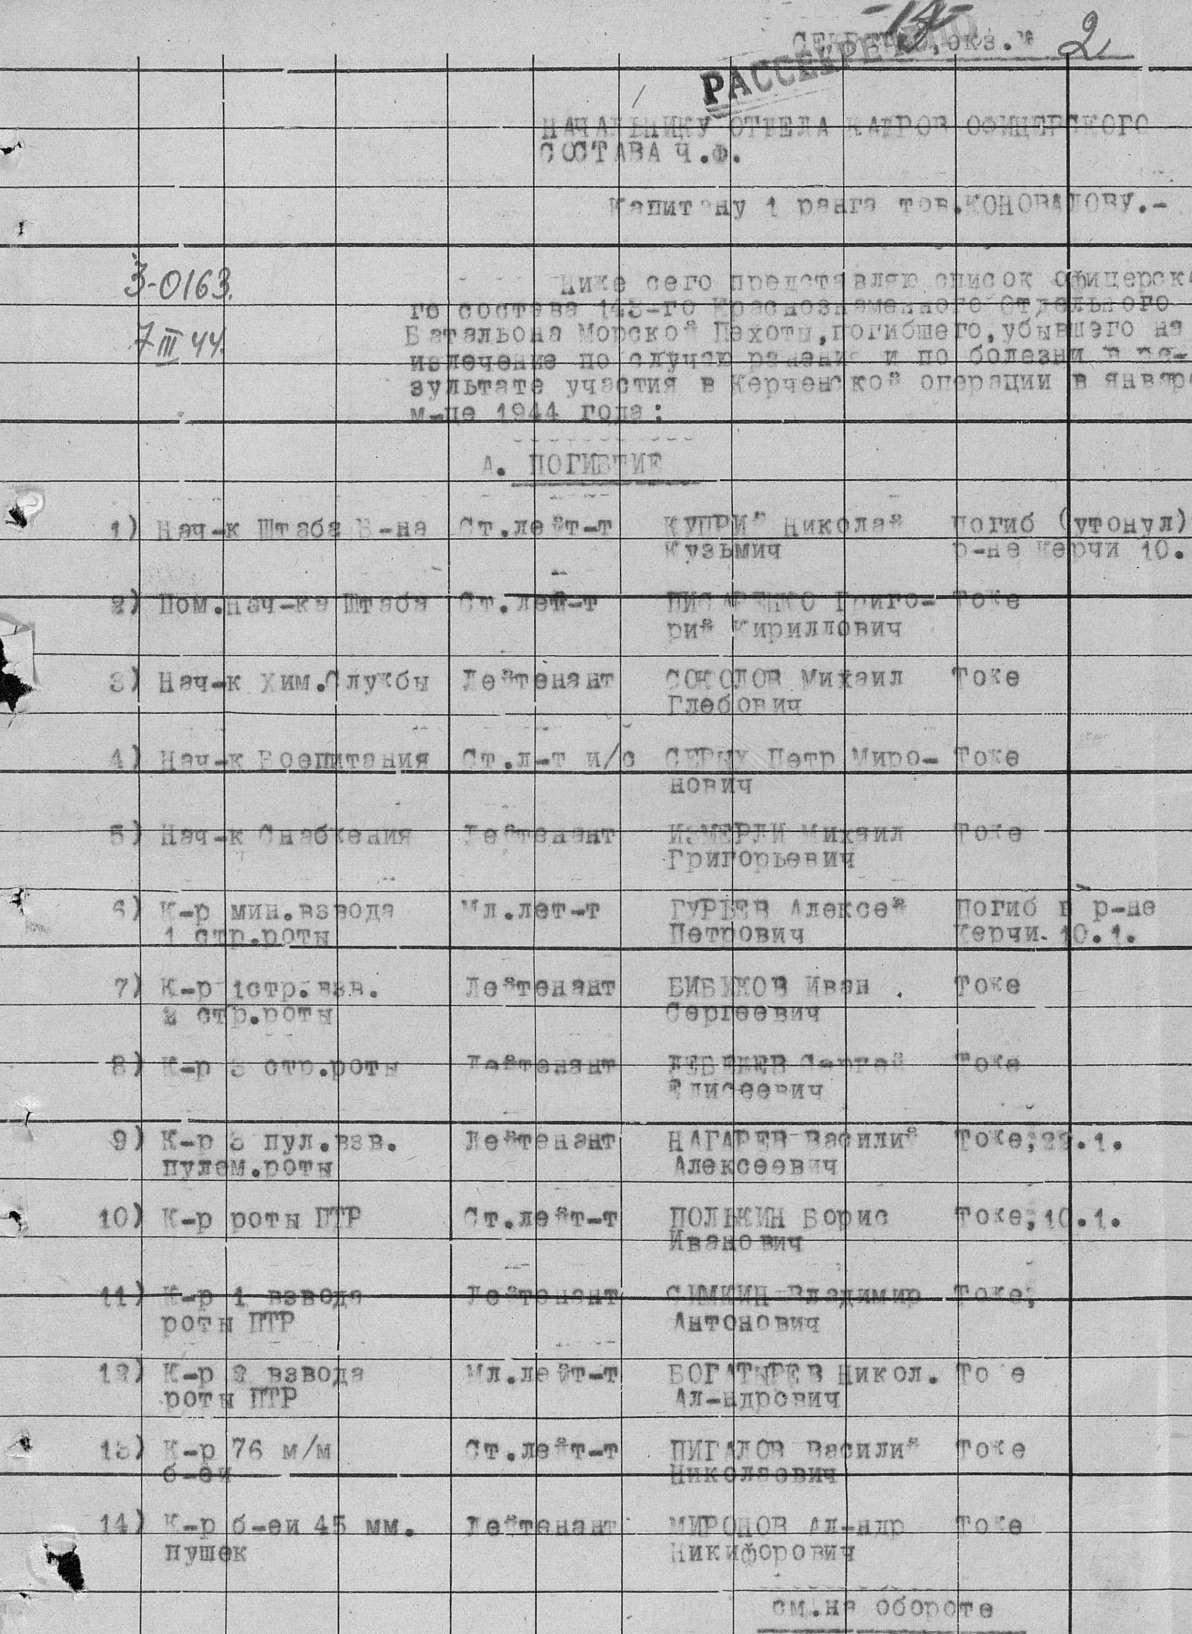 -14-
СЕКРЕТНО, экз.№ 2
РАССЕКРЕЧЕНО
НАЧАЛЬНИКУ ОТДЕЛА КАДРОВ ОФИЦЕРСКОГО
СОСТАВА Ч.Ф.
Капитану 1 ранга тов.КОНОВАЛОВУ.-
3-0163.
7 III 44.
Ниже сего представляю список офицерско
го состава 143-го Краснознаменного Отдельного
Батальона Морской Пехоты,погибшего,убывшего на
излечение по случаю ранения и по болезни в ре-
зультате участия в Керченской операции в январе
м-це 1944 года:
А. ПОГИБШИЕ
1) Нач-к Штаба Б-на Ст.лейт-т КУПРИЙ Николай Погиб (утонул)
Кузьмич р-не Керчи 10.
2) Пом.Нач-ка Штаба Ст.лей-т ПИСАРЕНКО Григо- Тоже
рий Кириллович
3) Нач-к Хим.Службы Лейтенант СОКОЛОВ Михаил Тоже
Глебович
4) Нач-к Воепитания Ст.л-т и/с СЕРЫХ Петр Миро- Тоже
нович
5) Нач-к Снабжения Лейтенант ИЗМЕРЛИ Михаил Тоже
Григорьевич
6) К-р мин.взвода Мл.лет-т ГУРЬЕВ Алексей Погиб в р-не
1 стр.роты Петрович Керчи. 10.1.
7) К-р 1стр.взв. Лейтенант БИБИКОВ Иван Тоже
2 стр.роты Сергеевич
8) К-р 3 стр.роты Лейтенант ЛЕБЕДЕВ Сергей Тоже
Елисеевич
9) К-р 3 пул.взв. Лейтенант НАГАРЕВ Василий Тоже;22.1.
пулем.роты Алексеевич
10) К-р роты ПТР Ст.лейт-т ПОЛЬКИН Борис Тоже;10.1.
Иванович
11) К-р 1 взвода Лейтенант СЫМКИН Владимир Тоже;
роты ПТР Антонович
12) К-р 2 взвода Мл.лейт-т БОГАТЫРЕВ Никол. То е
роты ПТР Ал-ндрович
13) К-р 76 м/м Ст.лейт-т ПИГАЛОВ Василий Тоже
б-еи Николаевич
14) К-р б-еи 45 мм. Лейтенант МИРОНОВ Ал-ндр Тоже
пушек Никифорович
см.на обороте